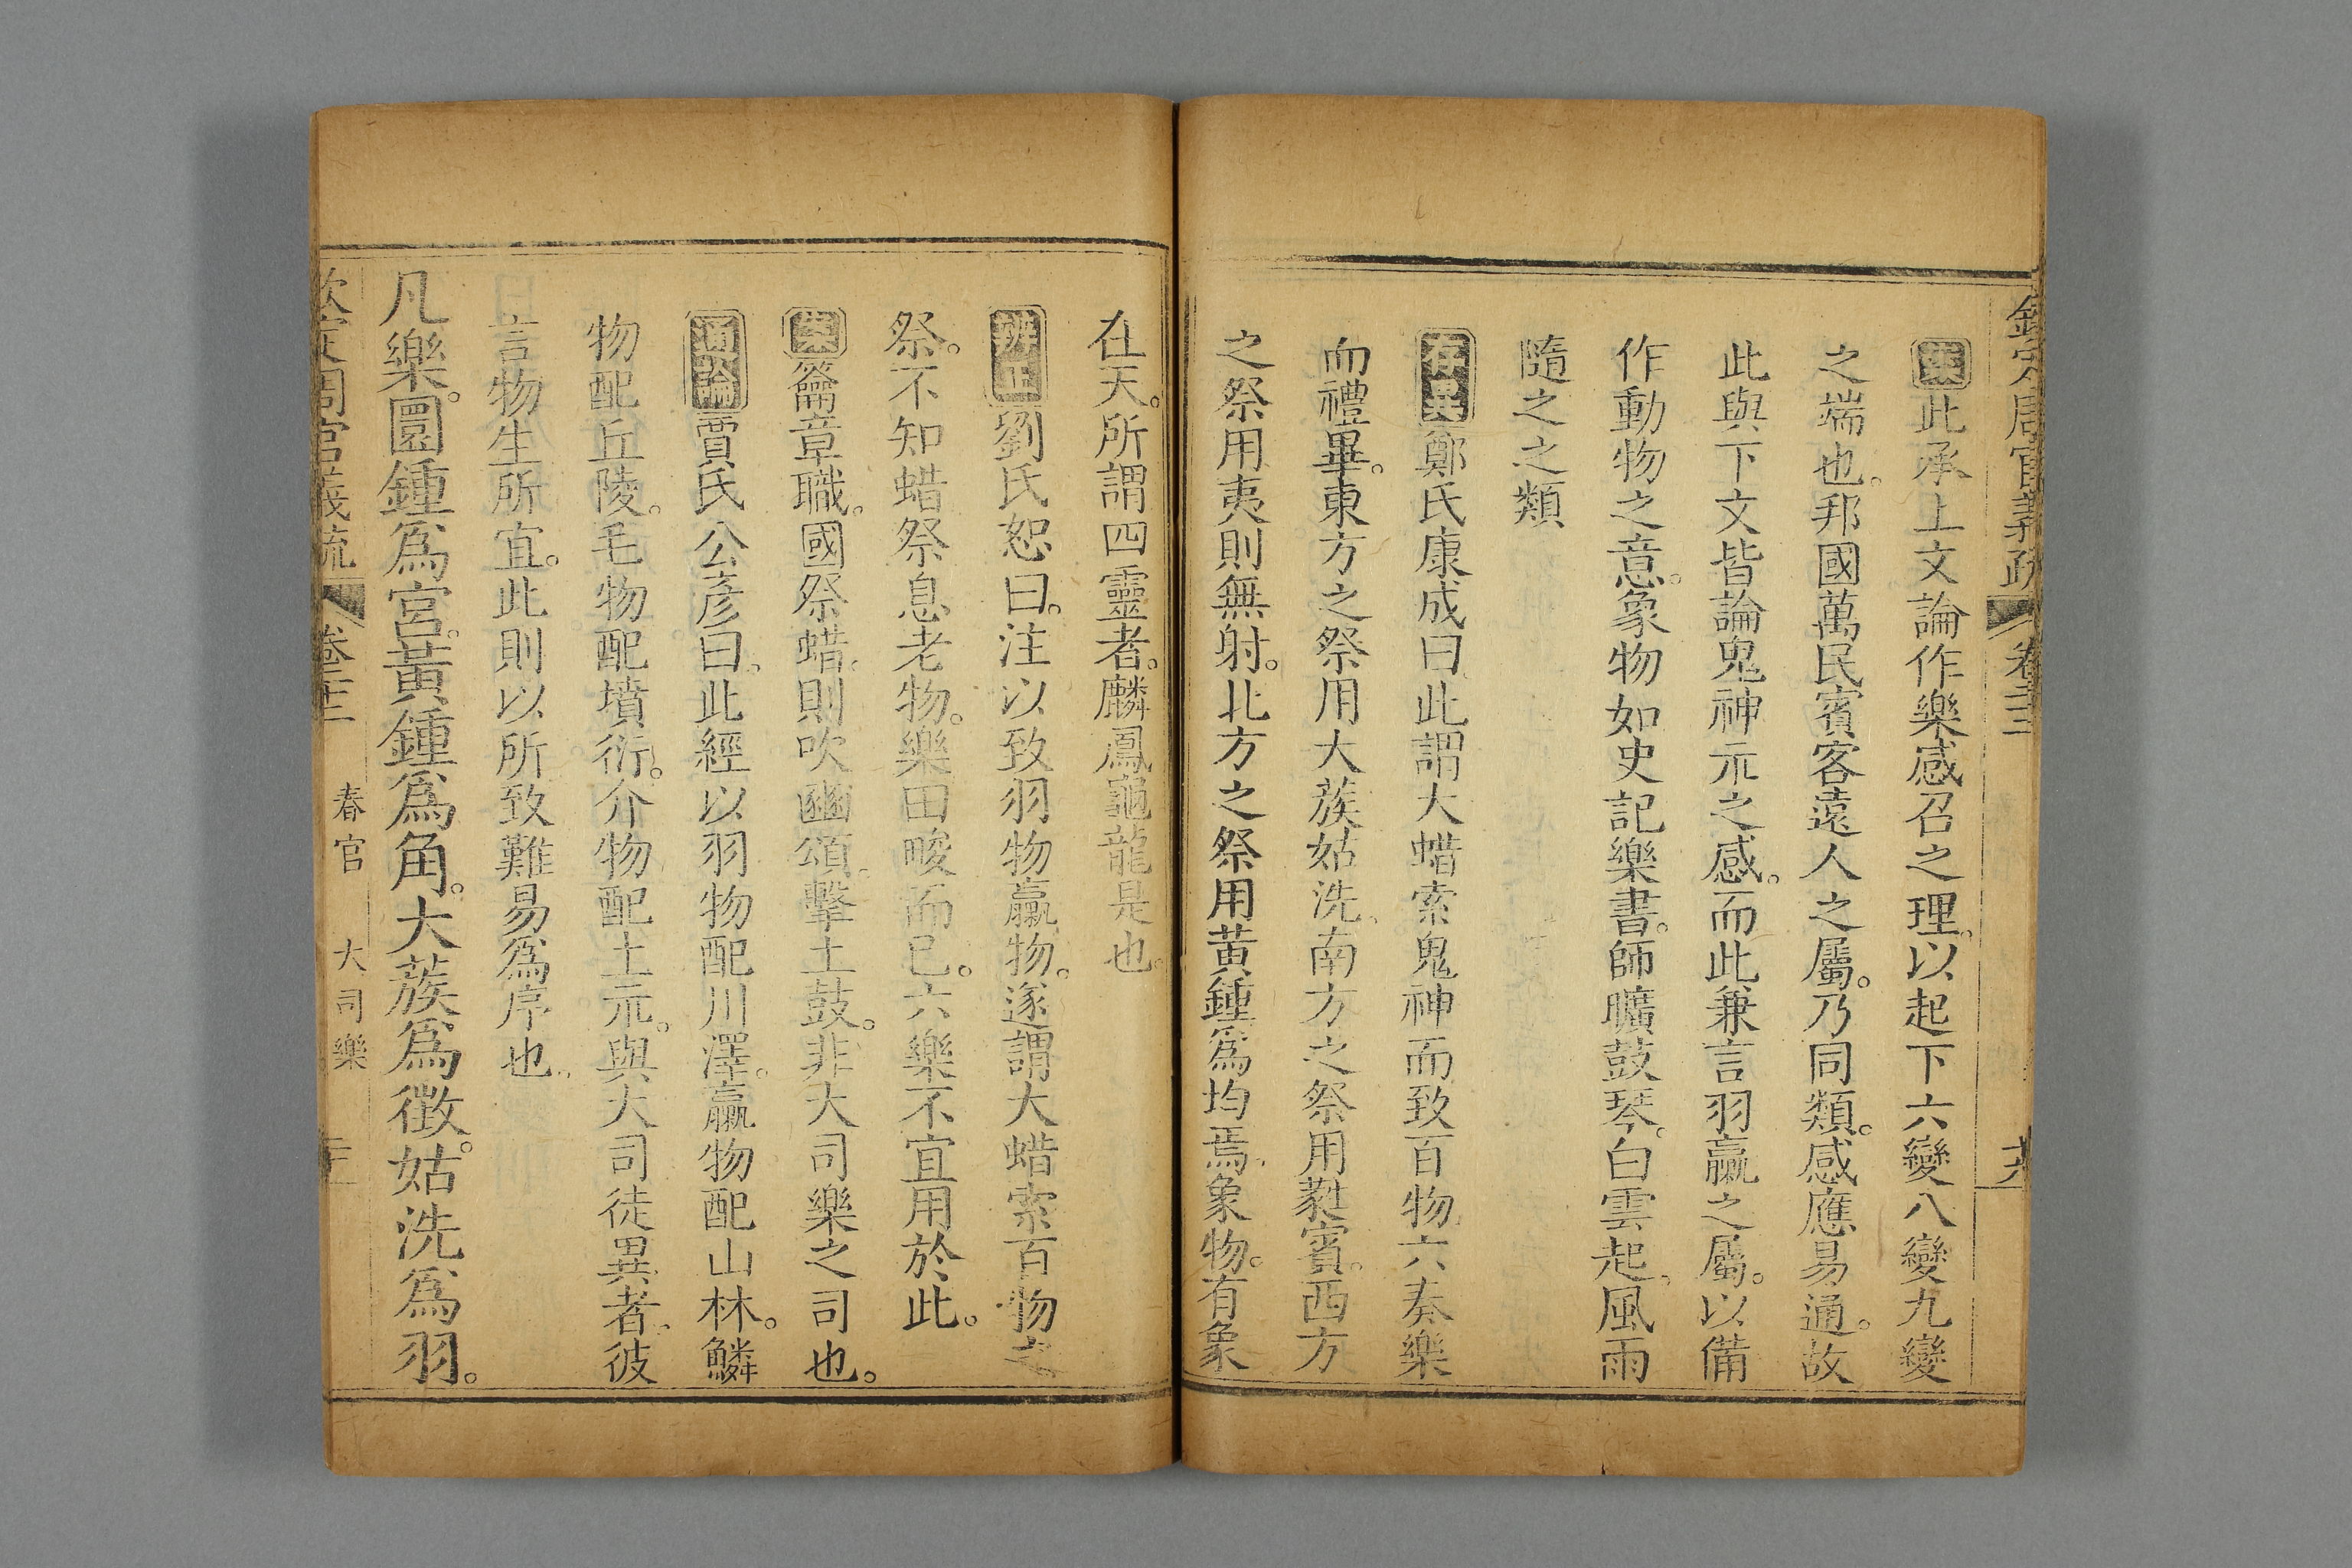 欽定周官義疏 卷二十二 十六
案此承上文論作樂感召之理。以起下六變八變九變
之端也。邦國萬民賓客遠人之屬。乃同類。感應易通。故
此與下文皆論鬼神示之感。而此兼言羽臝之屬。以備
作動物之意。象物如史記樂書。師曠鼓琴。白雲起。風雨
隨之之類
存異鄭氏康成曰此謂大蜡索鬼神而致百物六奏樂
而禮畢。東方之祭用大蔟姑洗。南方之祭用蕤賓。西方
之祭用夷則無射。北方之祭用黃鍾爲均焉。象物。有象
在天。所謂四靈者。麟鳳龜龍是也。
辨正劉氏恕曰。注以致羽物臝物。遂謂大蜡索百物之
祭。不知蜡祭息老物。樂田畯而已。六樂不宜用於此。
案籥章職。國祭蜡。則吹豳頌。擊土鼓。非大司樂之司也。
通論賈氏公彥曰。此經以羽物配川澤。臝物配山林。鱗
物配丘陵。毛物配墳衍。介物配土示。與大司徒異者。彼
言物生所宜。此則以所致難易爲序也。
凡樂。圜鍾爲宮。黃鍾爲角。大蔟爲徵。姑洗爲羽。
欽定周官義疏 卷二十二 春官 大司樂